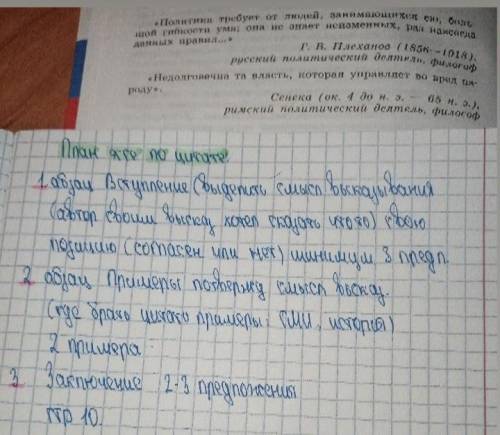 «Политика требует от людей, занимающихся ею, боль-
шой гибкости ума: она не знает неизменных, раз навсегда
данных правил...»
Г. В. Плеханов (1856—1918),
русский политический деятель, философ
«Недолговечна та власть, которая управляет во вред на-
роду».
Сенека (ок. 4 до н. э. — 65 н. э.),
римский политический деятель, философ
План эссе по цитате.
1 абзац Вступление (выделить смысл высказывания
(автор своим выскаz хотел сказать что то) свою
позицию (согласен или нет) минимум 3 предл.
2 абзац Примеры подтвержу смысл выскаz.
(где брать цитата примеры: СМИ, история)
2 примера
3 Заключение 2-3 предложения
стр 10.